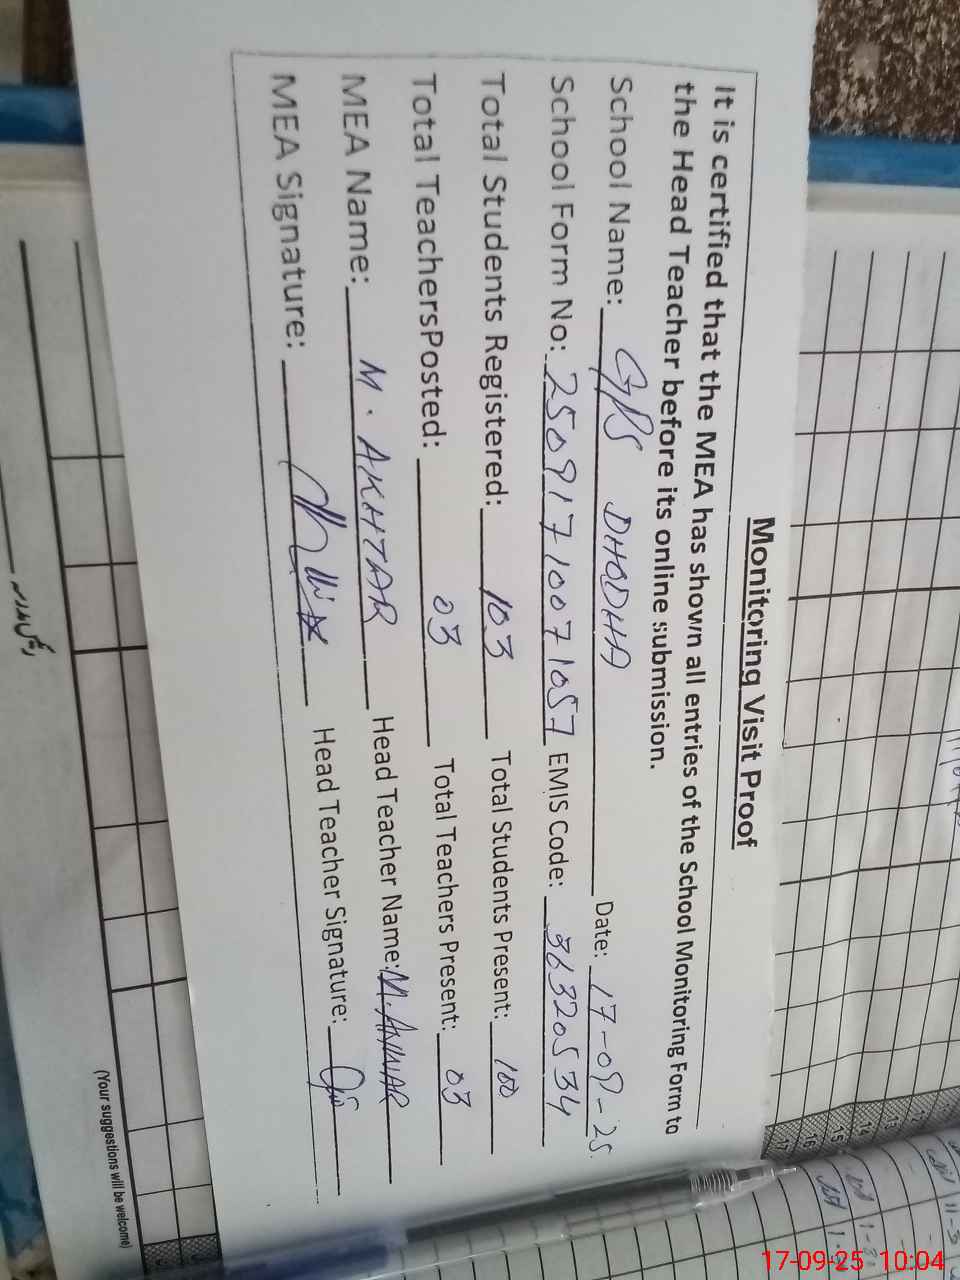 Monitoring Visit Proof
It is certified that the MEA has shown all entries of the School Monitoring Form to
the Head Teacher before its online submission.
School Name: GPS DHODHA Date: 17-09-25
School Form No: 25091710071057 EMIS Code: 36320534
Total Students Registered: 103 Total Students Present: 100
Total TeachersPosted: 03 Total Teachers Present: 03
MEA Name: M. AKHTAR Head Teacher Name: M. ANWAR
MEA Signature: Head Teacher Signature:
(Your suggestions will be welcome)
17
16
15
14
13
17-09-25 10:04